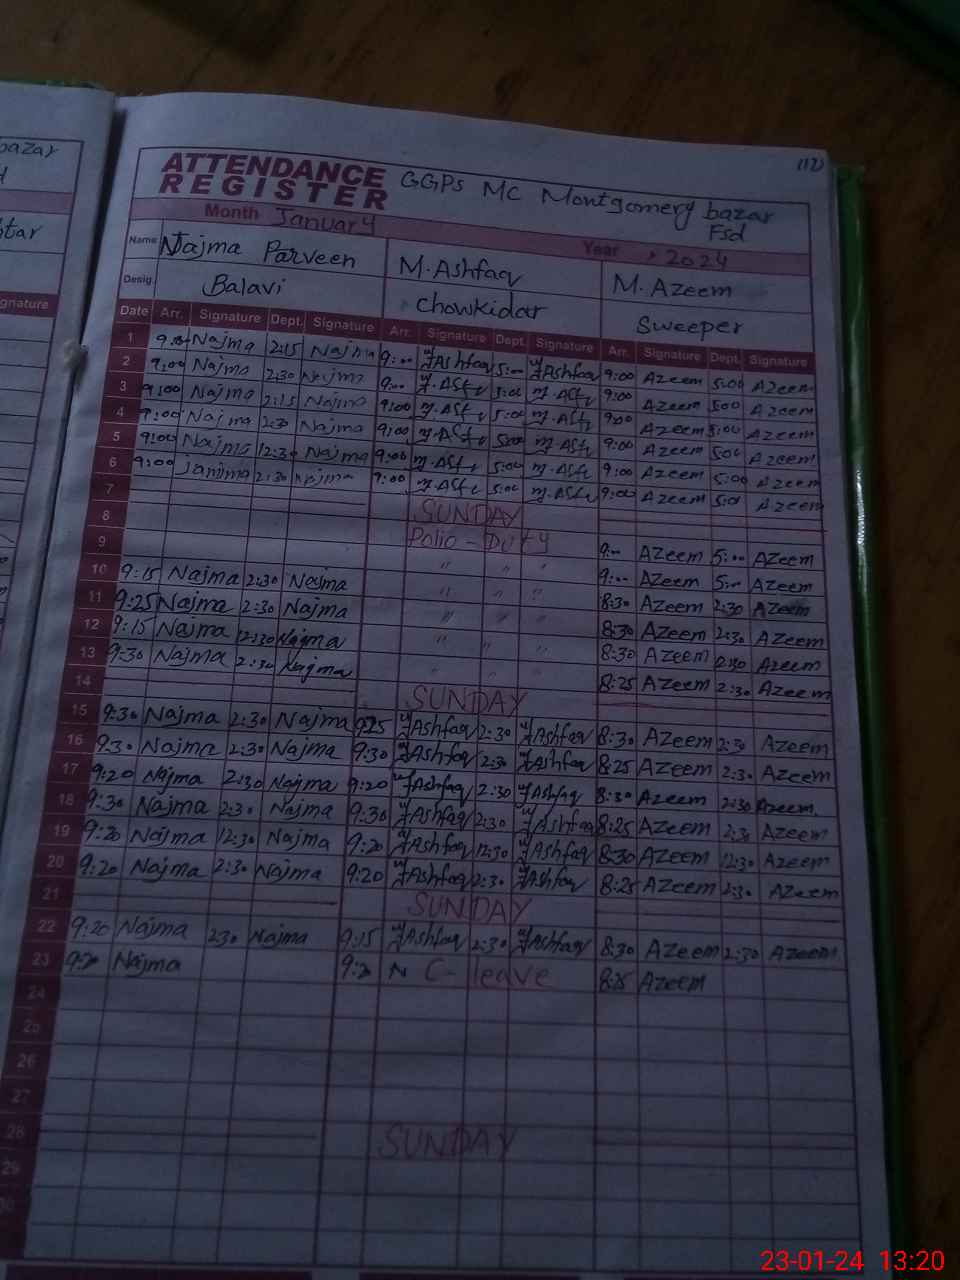 (12)
bazar
ATTENDANCE REGISTER GGPS MC Montgomery bazar Fsd
Month January Year 2024
Name Najma Parveen M. Ashfaq M. Azeem
Desig. Balavi Chowkidar Sweeper
gnature
Date Arr. Signature Dept. Signature Arr. Signature Dept. Signature Arr. Signature Dept. Signature
1 Najma 2:15 Najma 9:00 Ashfaq 5:00 Ashfaq 9:00 Azeem 5:00 Azeem
2 9:00 Najma 2:30 Najma 9:00 5:00 9:00 Azeem 5:00 Azeem
3 9:00 Najma 2:15 Najma 9:00 5:00 9:00 Azeem 5:00 Azeem
4 9:00 Najma 2:30 Najma 9:00 5:00 9:00 Azeem 5:00 Azeem
5 9:00 Najma 12:30 Najma 9:00 5:00 9:00 Azeem 5:00 Azeem
6 9:00 2:30 Najma 9:00 5:00 9:00 Azeem 5:00 Azeem
7 SUNDAY
8 Polio - Duty 9:00 Azeem 5:00 Azeem
9 " " " 9:00 Azeem 5:00 Azeem
10 9:15 Najma 2:30 Najma " " " 8:30 Azeem 2:30 Azeem
11 9:25 Najma 2:30 Najma " " " 8:30 Azeem 2:30 Azeem
12 9:15 Najma 12:30 Najma " " " 8:30 Azeem 2:30 Azeem
13 9:30 Najma 2:30 Najma " " " 8:25 Azeem 2:30 Azeem
14 SUNDAY
15 9:30 Najma 2:30 Najma 9:25 Ashfaq 2:30 Ashfaq 8:30 Azeem 2:30 Azeem
16 9:30 Najma 2:30 Najma 9:30 Ashfaq 2:30 Ashfaq 8:25 Azeem 2:30 Azeem
17 9:20 Najma 2:30 Najma 9:20 Ashfaq 2:30 Ashfaq 8:30 Azeem 2:30 Azeem
18 9:30 Najma 2:30 Najma 9:30 Ashfaq 2:30 Ashfaq 8:25 Azeem 2:30 Azeem
19 9:20 Najma 12:30 Najma 9:20 Ashfaq 12:30 Ashfaq 8:30 Azeem 12:30 Azeem
20 9:20 Najma 2:30 Najma 9:20 Ashfaq 2:30 Ashfaq 8:25 Azeem 2:30 Azeem
21 SUNDAY
22 9:20 Najma 2:30 Najma 9:15 Ashfaq 2:30 Ashfaq 8:30 Azeem 2:30 Azeem
23 9:20 Najma 9:20 C- leave 8:25 Azeem
24
25
26
27
28 SUNDAY
29
30
23-01-24 13:20